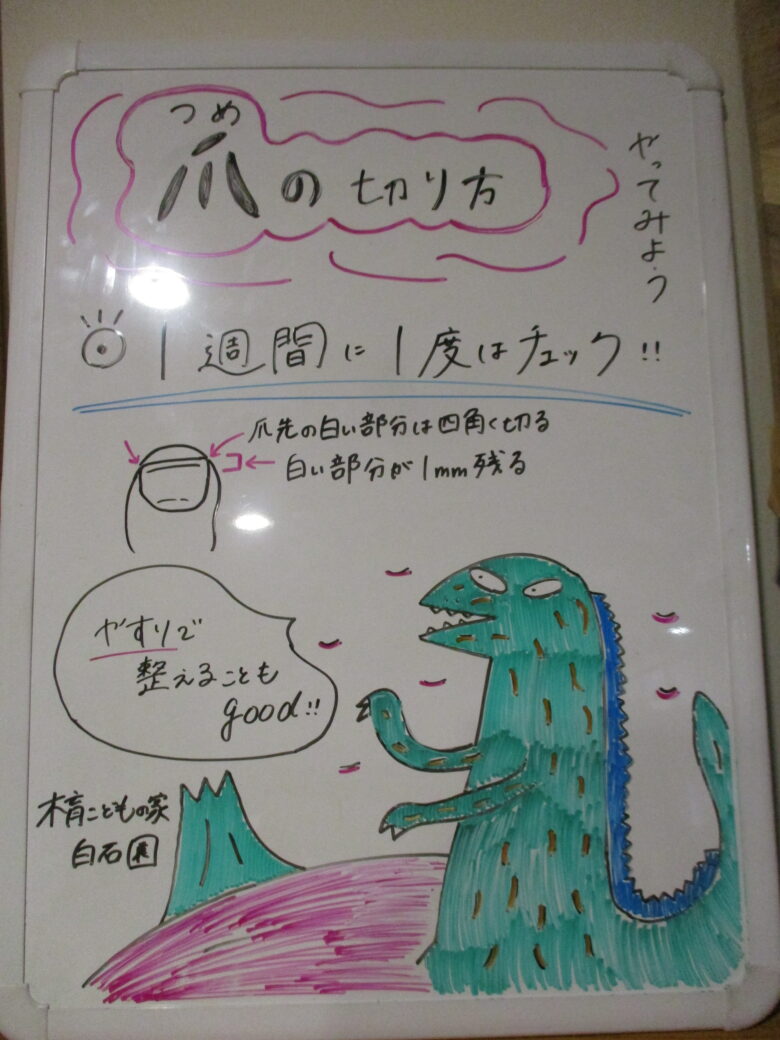 つめ
爪の切り方
やってみよう
1週間に1度はチェック!!
爪先の白い部分は四角く切る
白い部分が1mm残る
やすりで
整えることも
good!!
木育こどもの家
白石園